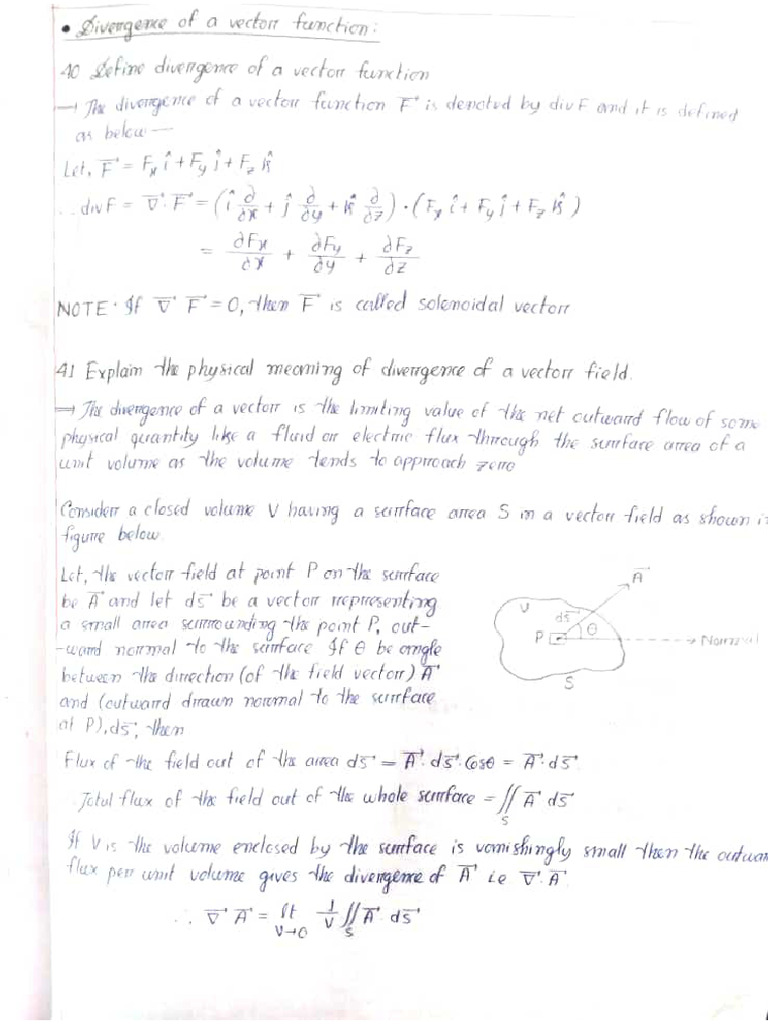 • Divergence of a vector function:
40 Define divergence of a vector function
→ The divergence of a vector function F⃗ is denoted by div F and it is defined
as below—
Let, F⃗ = Fx î + Fy ĵ + Fz k̂
∴ div F = ∇⃗. F⃗ = (î ∂/∂x + ĵ ∂/∂y + k̂ ∂/∂z) · (Fx î + Fy ĵ + Fz k̂)
= ∂Fx/∂x + ∂Fy/∂y + ∂Fz/∂z
NOTE· If ∇⃗ F⃗ = 0, then F⃗ is called solenoidal vector
41 Explain the physical meaning of divergence of a vector field.
→ The divergence of a vector is the limiting value of the net outward flow of some
physical quantity like a fluid or electric flux through the surface area of a
unit volume as the volume tends to approach zero
Consider a closed volume V having a surface area S in a vector field as shown i
figure below.
Let, the vector field at point P on the surface
be A⃗ and let ds⃗ be a vector representing
a small area surrounding the point P, out-
-ward normal to the surface If θ be angle
between the direction (of the field vector) A⃗
and (outward drawn normal to the surface
at P), ds⃗, then
A⃗
V
ds⃗
P
θ
Normal
S
Flux of the field out of the area ds⃗ = A⃗. ds⃗. Cosθ = A⃗. ds⃗
Total flux of the field out of the whole surface = ∬S A⃗ ds⃗
If V is the volume enclosed by the surface is vanishingly small then the outwar
flux per unit volume gives the divergence of A⃗ i.e ∇⃗. A⃗
∴ ∇⃗ A⃗ = lt V→0 1/V ∬S A⃗. ds⃗